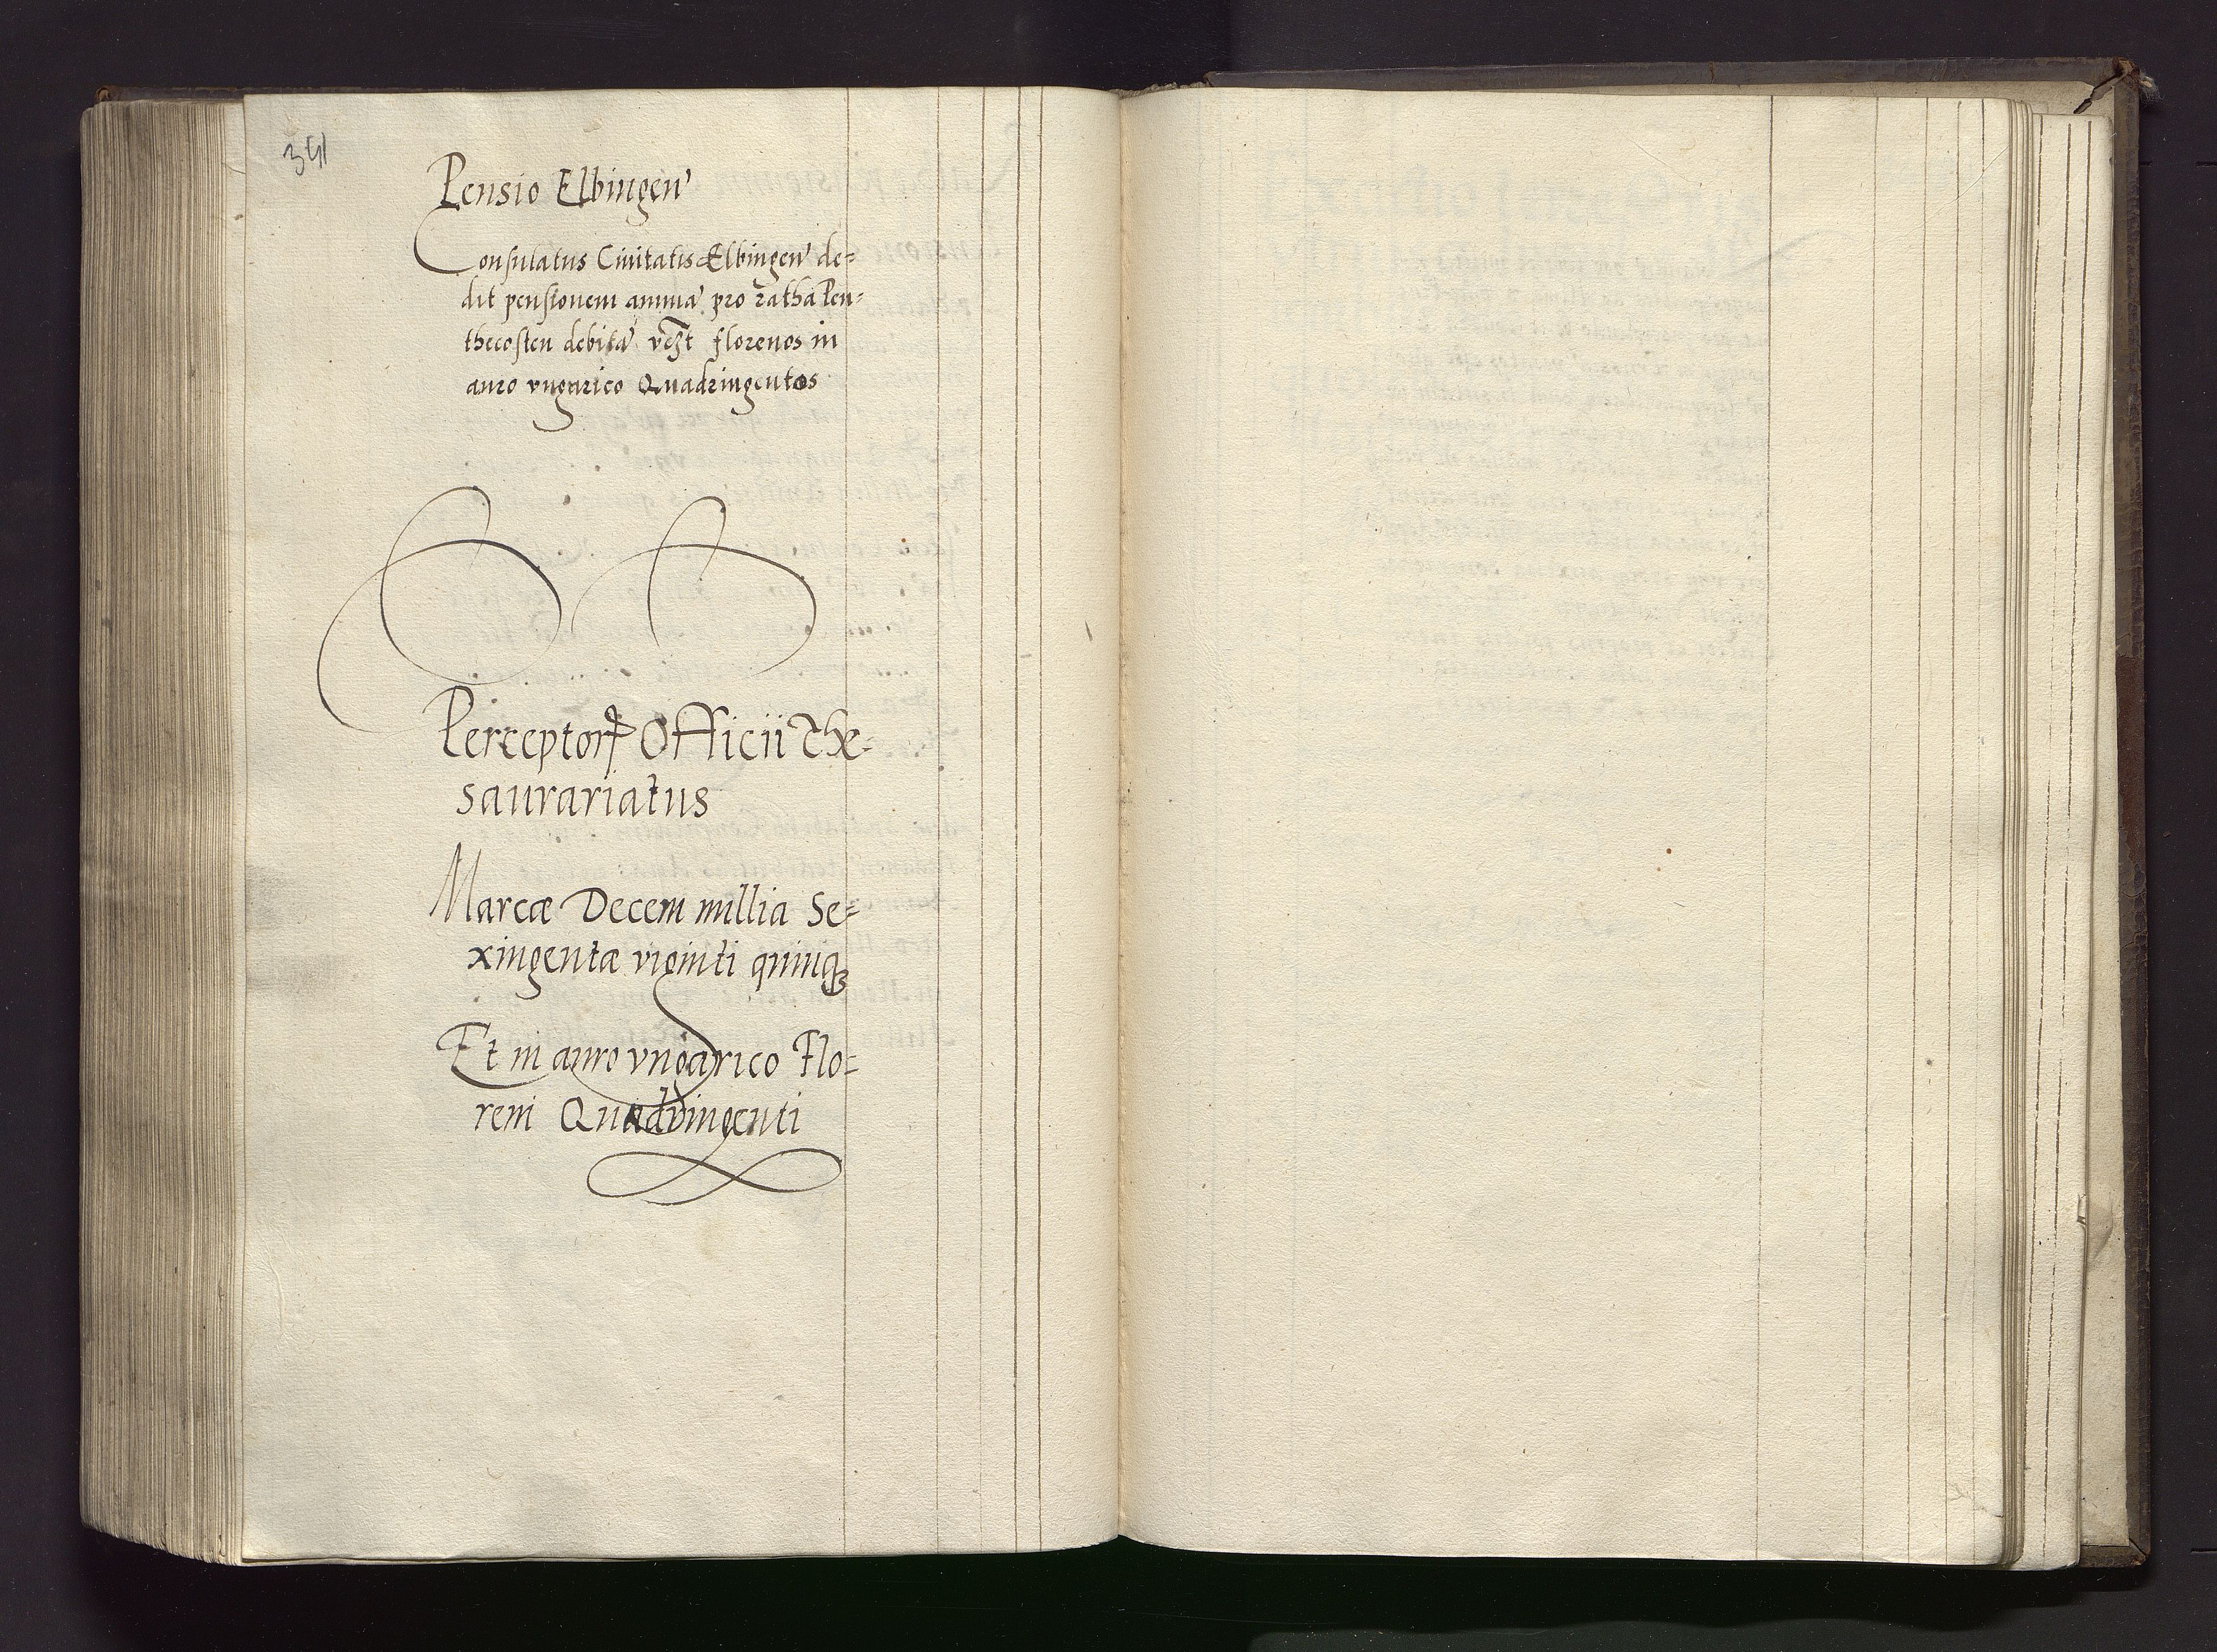 341
Pensio Elbingen'
Consulatus Ciuitatis Elbingen' de=
dit pensionem annua' pro ratha Pen=
thecosten debita' florenos in
auro vngarico Quadringentos
Perceptor Officii The=
saurariatus
Marcæ Decem millia Se=
xingentæ viginti quinq3
Et in auro vngarico Flo=
reni Quadringenti